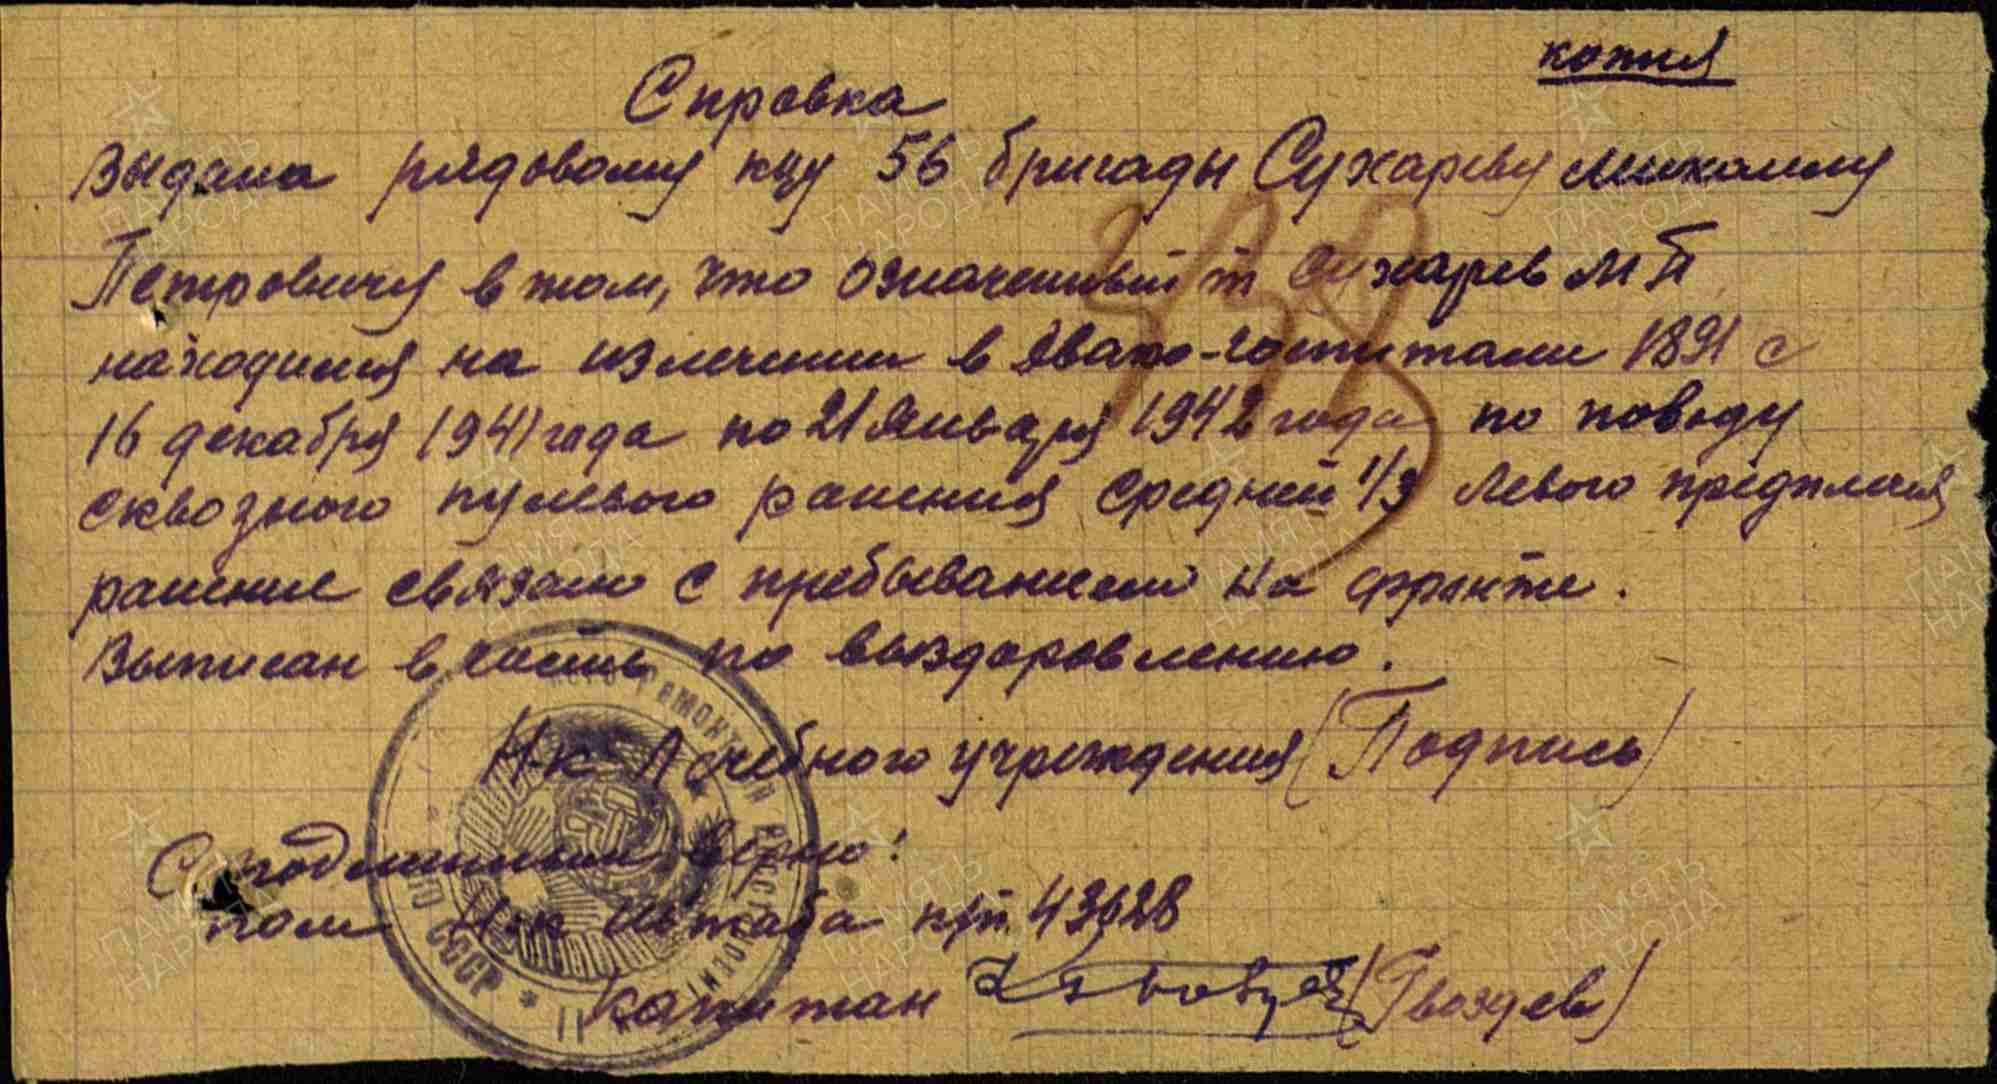 копия
Справка
Выдана рядовому кцу 56 бригады Сухареву Михаилу
Петровичу в том, что означенный т Сухарев М П
находился на излечении в Эвако-госпитале 1891 с
16 декабря 1941 года по 21 Января 1942 года по поводу
сквозного пулевого ранения средней 1/3 левого предплечья
ранение связано с пребыванием на фронте.
Выписан в часть по выздоровлению.
Н-к Лечебного учреждения (Подпись)
С подлинным верно:
пом Н-к Штаба п/п. 43628
Капитан (Гвоздев)
338
СССР *
ПАМЯТЬ
НАРОДА